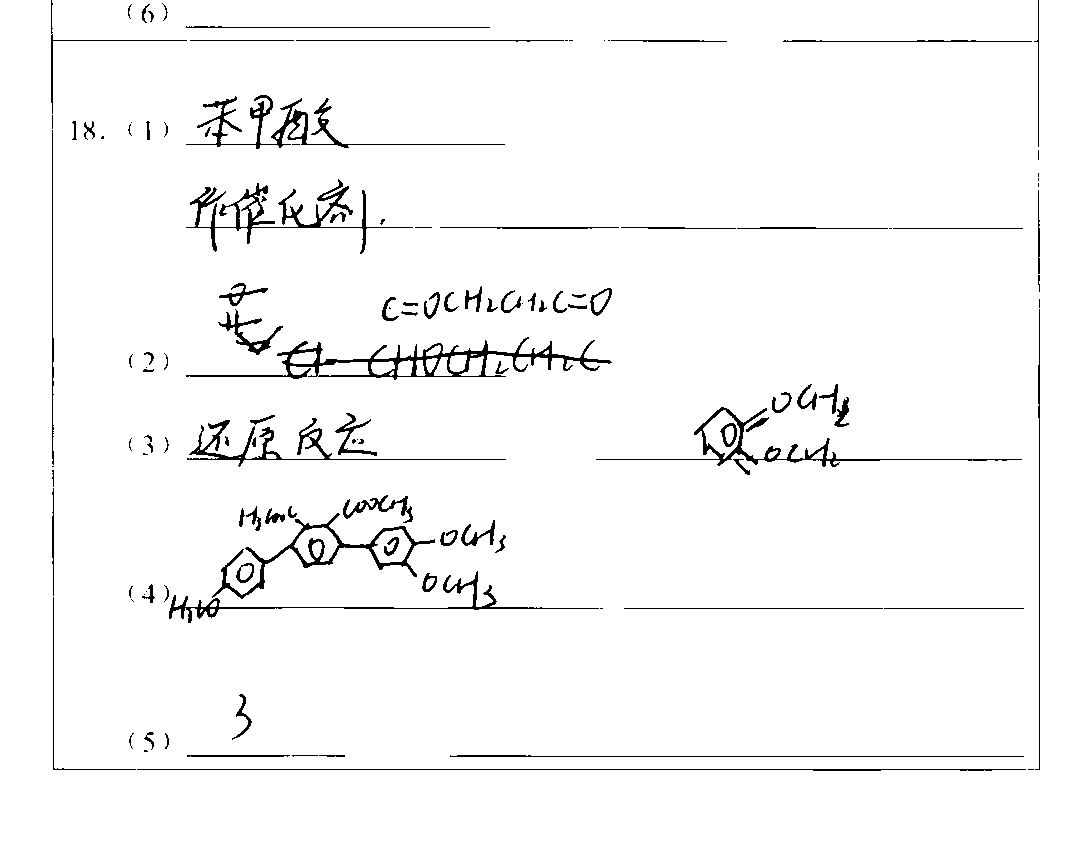 (6)
18. (1) 苯甲酸
作催化剂.
C=OCH₂CH₂C=O
(2)
(3) 还原反应 OCH₂
OCH₂
H₃COOC COOCH₃
OCH₃
OCH₃
(4) H₃CO
3
(5)